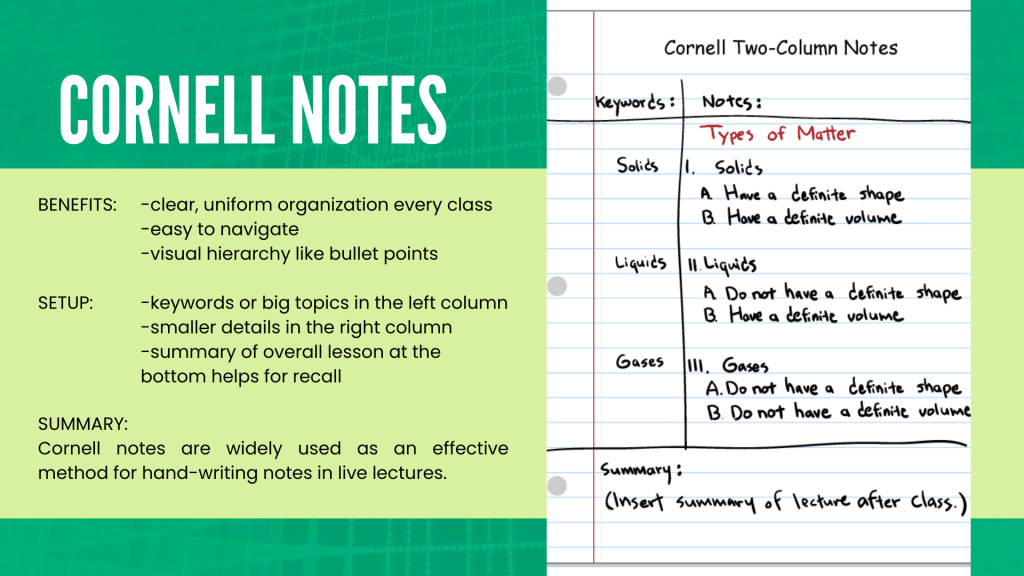 CORNELL NOTES
BENEFITS: -clear, uniform organization every class
-easy to navigate
-visual hierarchy like bullet points
SETUP: -keywords or big topics in the left column
-smaller details in the right column
-summary of overall lesson at the
bottom helps for recall
SUMMARY:
Cornell notes are widely used as an effective
method for hand-writing notes in live lectures.
Cornell Two-Column Notes
Keywords: Notes:
Types of Matter
Solids I. Solids
A. Have a definite shape
B. Have a definite volume
Liquids II. Liquids
A. Do not have a definite shape
B. Have a definite volume
Gases III. Gases
A. Do not have a definite shape
B. Do not have a definite volume
Summary:
(Insert summary of lecture after class.)